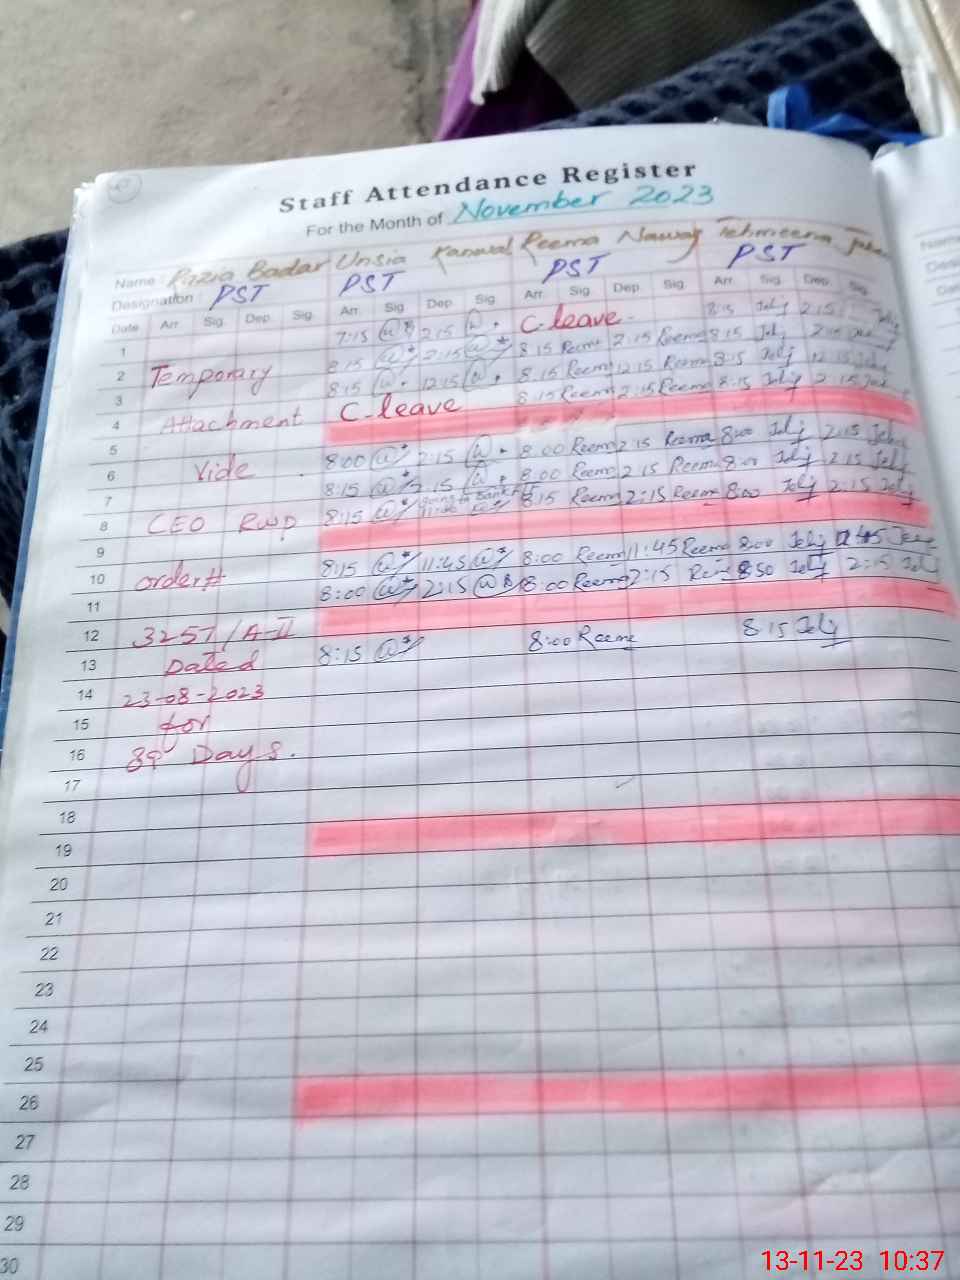 Staff Attendance Register
For the Month of November 2023
Name : Razia Badar Unsia Kanwal Reema Nawaz Tehmeena
Designation : PST PST PST PST
Date Arr. Sig. Dep. Sig. Arr. Sig. Dep. Sig. Arr. Sig. Dep. Sig. Arr. Sig. Dep. Sig.
1 7:15 2:15 C-leave. 8:15 2:15
2 Temporary 8:15 2:15 8:15 Reema 2:15 Reema 8:15 2:15
3 8:15 12:15 8:15 Reema 12:15 Reema 8:15 12:15
4 Attachment C-leave 8:15 Reema 2:15 Reema 8:15 2:15
5
6 Vide 8:00 2:15 8:00 Reema 2:15 Reema 8:00 2:15
7 8:15 2:15 8:00 Reema 2:15 Reema 8:00 2:15
8 CEO RWP 8:15 going to Bank 8:15 Reema 2:15 Reema 8:00 2:15
9
10 order # 8:15 11:45 8:00 Reema 11:45 Reema 8:00
11 8:00 2:15 8:00 Reema 2:15 8:50 2:15
12 3257/A-II
13 Dated 8:15 8:00 Reema 8:15
14 23-08-2023
15 for
16 89 Days.
17
18
19
20
21
22
23
24
25
26
27
28
29
30
13-11-23 10:37